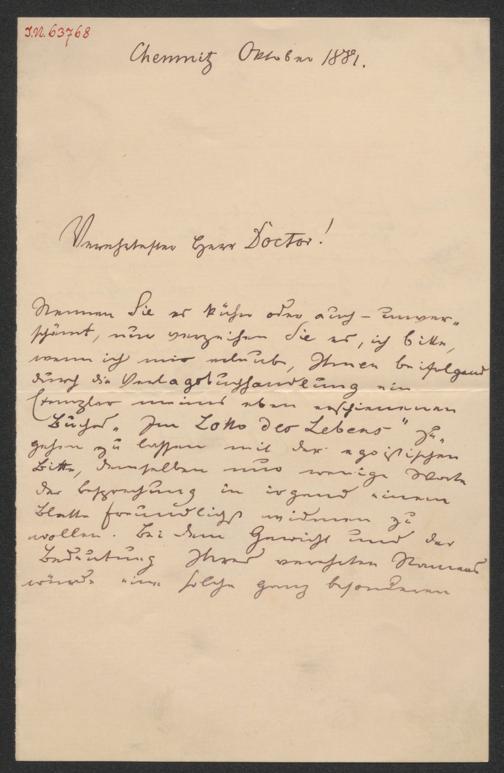 I.N. 63768
Chemnitz Oktober 1881.
Verehrtester Herr Doctor!
Nennen Sie es kühn oder auch – unver-
schämt, nur verzeihen Sie es, ich bitte,
wenn ich mir erlaube, Ihnen beifolgend
durch die Verlagsbuchhandlung ein
Exemplar meines eben erschienenen
Buches „Im Lotto des Lebens" zu-
gehen zu lassen mit der egoistischen
Bitte, demselben nur wenige Worte
der Besprechung in irgend einem
Blatte freundlichst widmen zu
wollen. Bei dem Gewicht und der
Bedeutung Ihres verehrten Namens
würde eine solche ganz besonderen